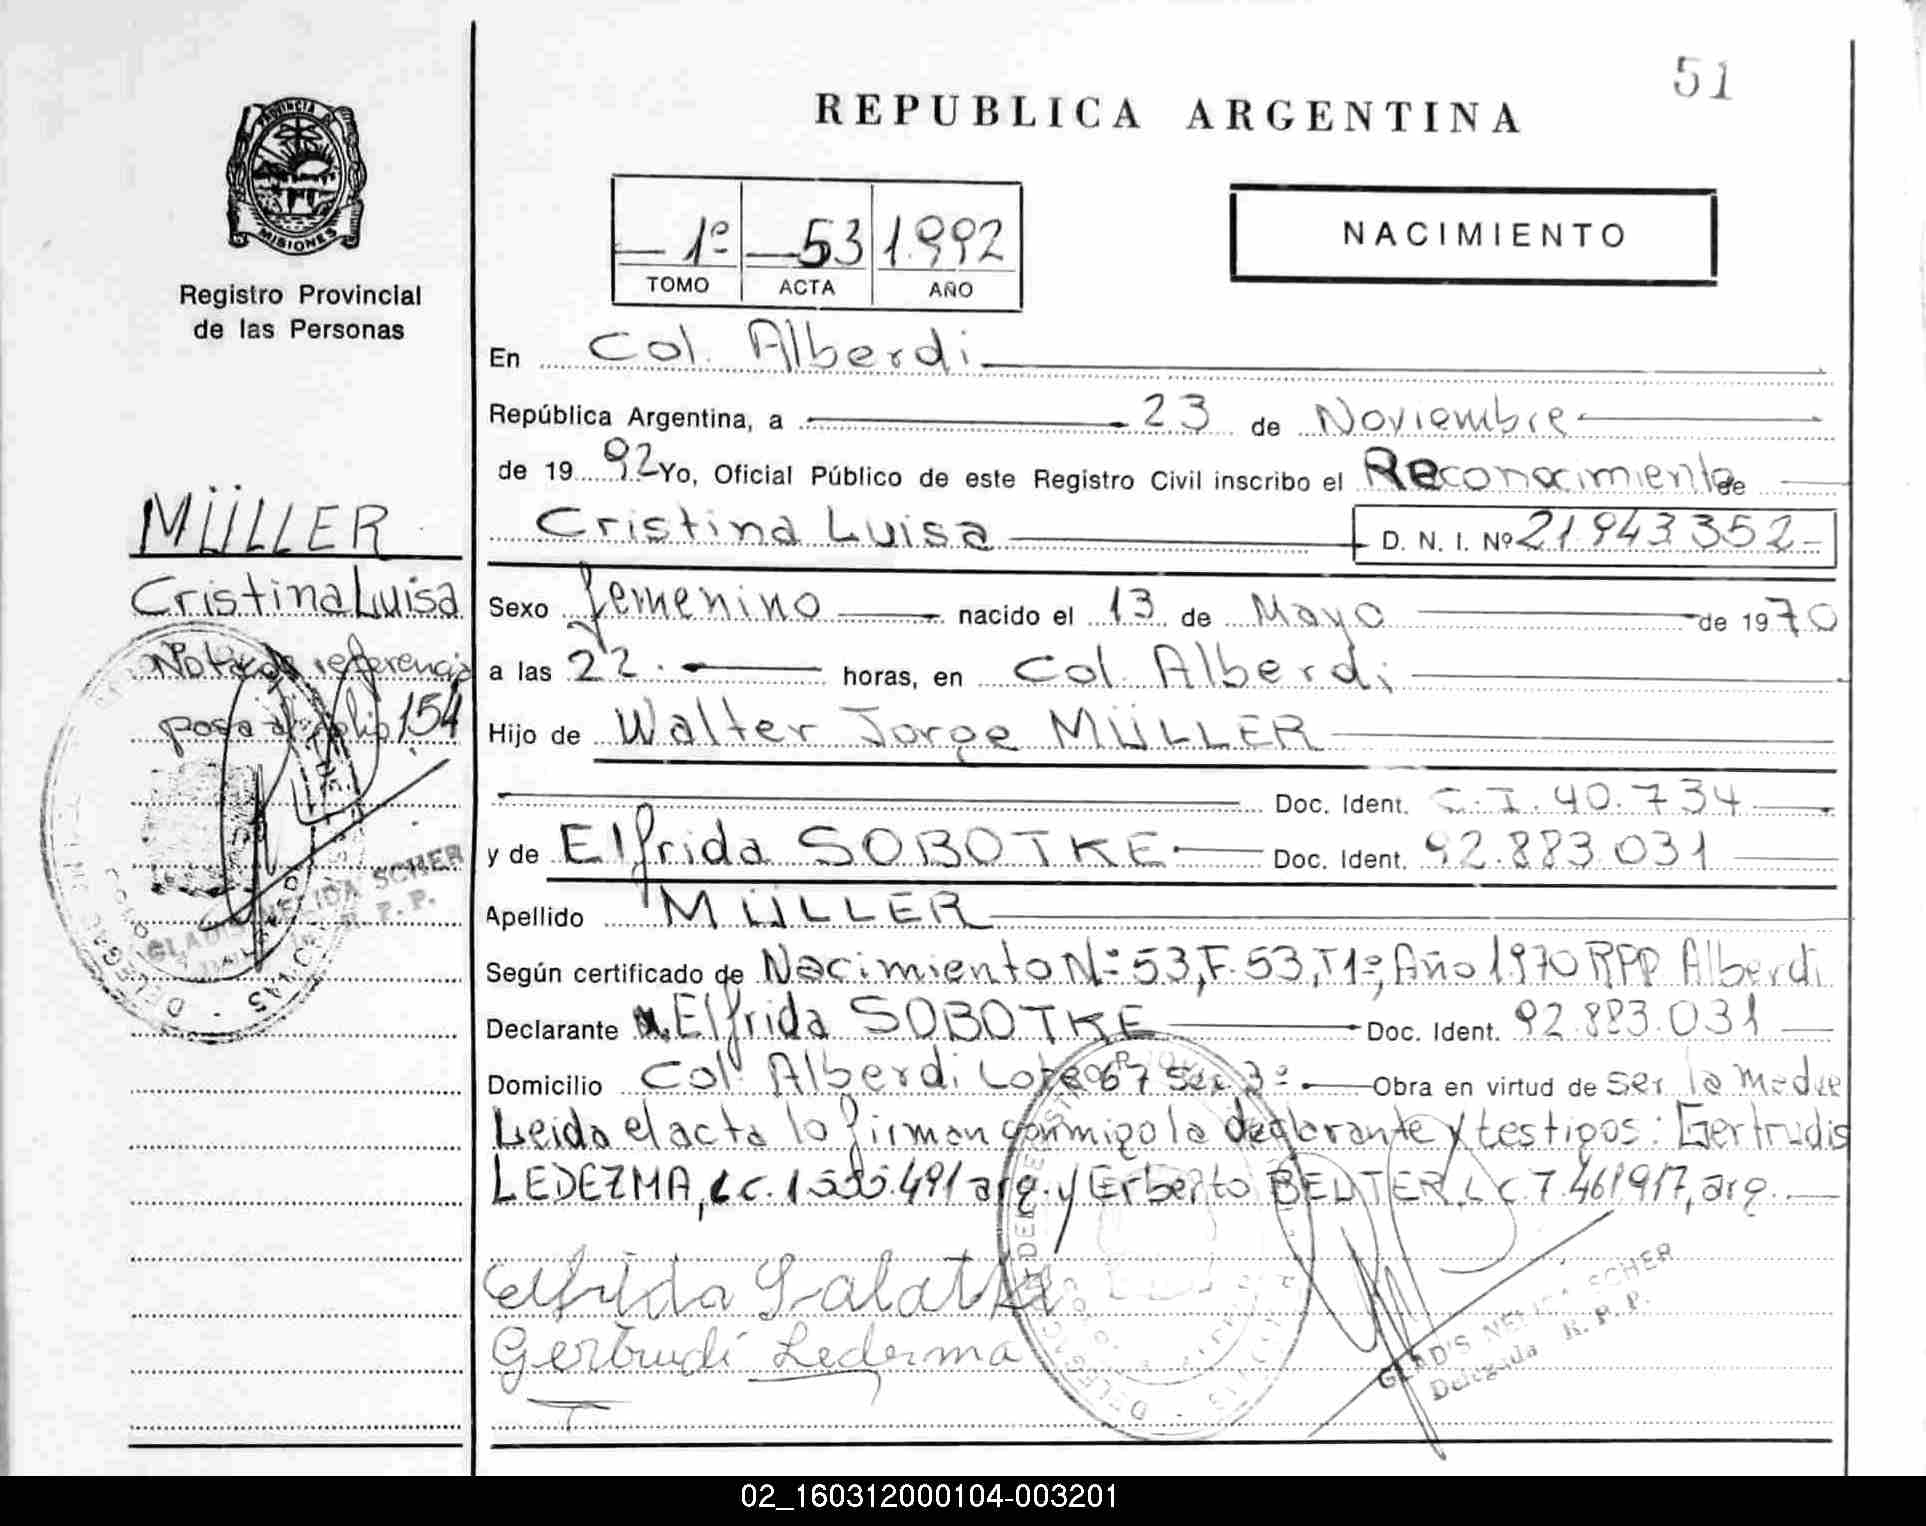 51
REPUBLICA ARGENTINA
PROVINCIA DE
MISIONES
Registro Provincial
de las Personas
1º 53 1.992
TOMO ACTA AÑO
NACIMIENTO
En Col. Alberdi
República Argentina, a 23 de Noviembre
de 19 92 Yo, Oficial Público de este Registro Civil inscribo el Reconocimiento de
Cristina Luisa D. N. I. Nº 21.943.352
MÜLLER
Cristina Luisa
Nota de referencia
pasa al folio 154
GLADIS NELIDA SCHER
R. P. P.
Sexo femenino nacido el 13 de Mayo de 1970
a las 22. horas, en Col. Alberdi
Hijo de Walter Jorge MÜLLER
Doc. Ident. C.I. 40.734
y de Elfrida SOBOTKE Doc. Ident. 92.883.031
Apellido MÜLLER
Según certificado de Nacimiento Nº 53, F. 53, T1º, Año 1970 RPP Alberdi
Declarante Elfrida SOBOTKE Doc. Ident. 92.883.031
Domicilio Col. Alberdi Lote 67 Sec 3º Obra en virtud de ser la madre
Leida el acta lo firman conmigo la declarante y testigos: Gertrudis
LEDEZMA, L.C. arg. y Erberto BELTER, L C 7.461917, arg.
Elfrida
Gertrudi Lederma
GLADIS NELIDA SCHER
Delegada R. P. P.
02_160312000104-003201